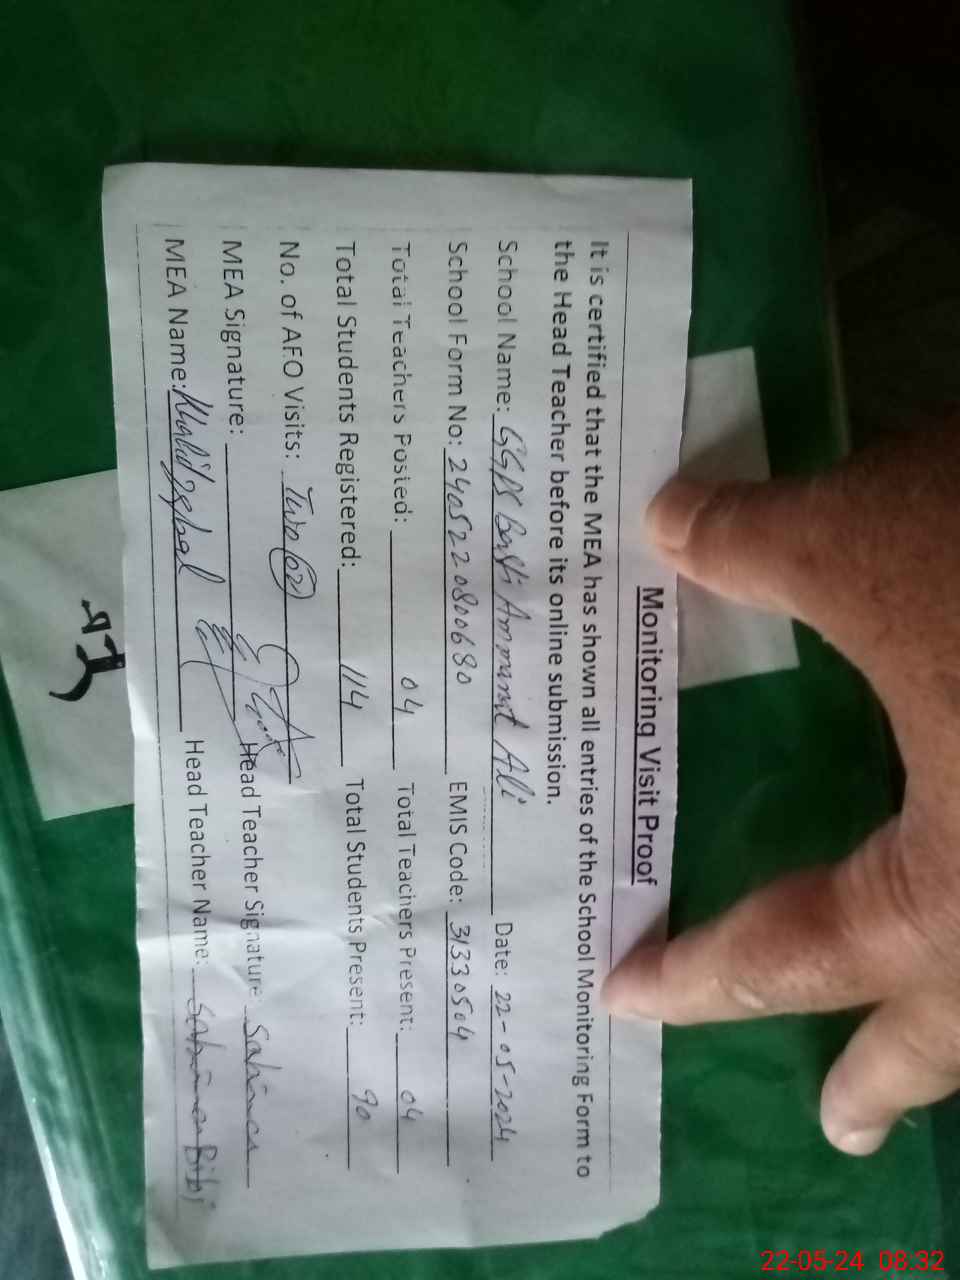 Monitoring Visit Proof
It is certified that the MEA has shown all entries of the School Monitoring Form to
the Head Teacher before its online submission.
School Name: GGPS Basti Ammant Ali Date: 22-05-2024
School Form No: 2405220800680 EMIS Code: 31330504
Total Teachers Posted: 04 Total Teachers Present: 04
Total Students Registered: 114 Total Students Present: 90
No. of AEO Visits: Two (02)
MEA Signature: Head Teacher Signature:
MEA Name: Khalid Iqbal Head Teacher Name: Bibi
22-05-24 08:32